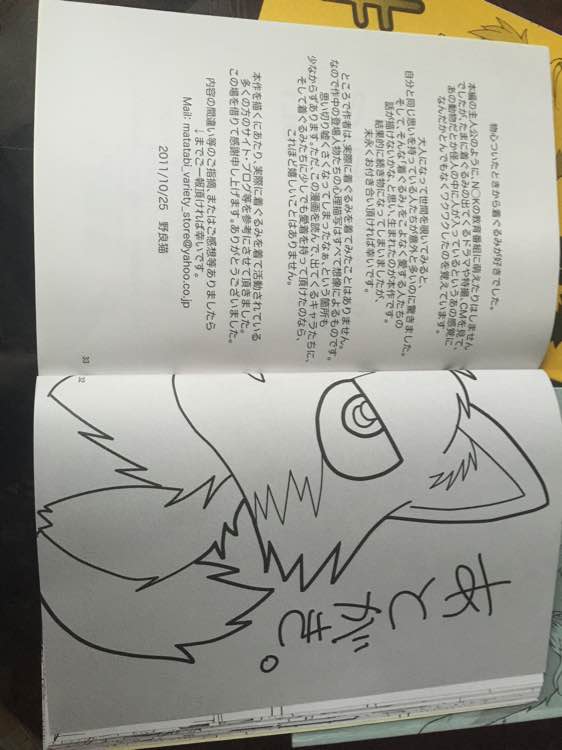 あとがき。
物心ついたときから着ぐるみが好きでした。
本編の主人公のように、N○Kの教育番組に萌えたりはしません
でしたが、たまに着ぐるみの出てくるドラマや特撮、CMを見て、
あの動物だとか怪人の中に人が入っているというあの感覚に
なんだかとんでもなくワクワクしたのを覚えています。
大人になって世間を覗いてみると、
自分と同じ思いを持っている人たちが意外と多いのに驚きました。
そして、そんな「着ぐるみ」をこよなく愛する人たちの
話が描けないかな、と思い、生まれたのが本作です。
結果的に続き物になってしまいましたが、
末永くお付き合い頂ければ幸いです。
ところで作者は、実際に着ぐるみを着てみたことはありません。
なので作中の登場人物たちの心理描写はすべて想像によるものです。
思い切り嘘くさくなってしまったなぁ、という箇所も
少なからずあります。ただ、この漫画を読んで、出てくるキャラたちに、
そして着ぐるみたちに少しでも愛着を持って頂けたのなら、
これほど嬉しいことはありません。
本作を描くにあたり、実際に着ぐるみを着て活動されている
多くの方のサイト・ブログ等を参考にさせて頂きました。
この場を借りて感謝申し上げます。ありがとうございました。
内容の間違い等のご指摘、またはご感想等ありましたら
↓までご一報頂ければ幸いです。
Mail: matatabi_variety_store@yahoo.co.jp
2011/10/25 野良猫
32
33